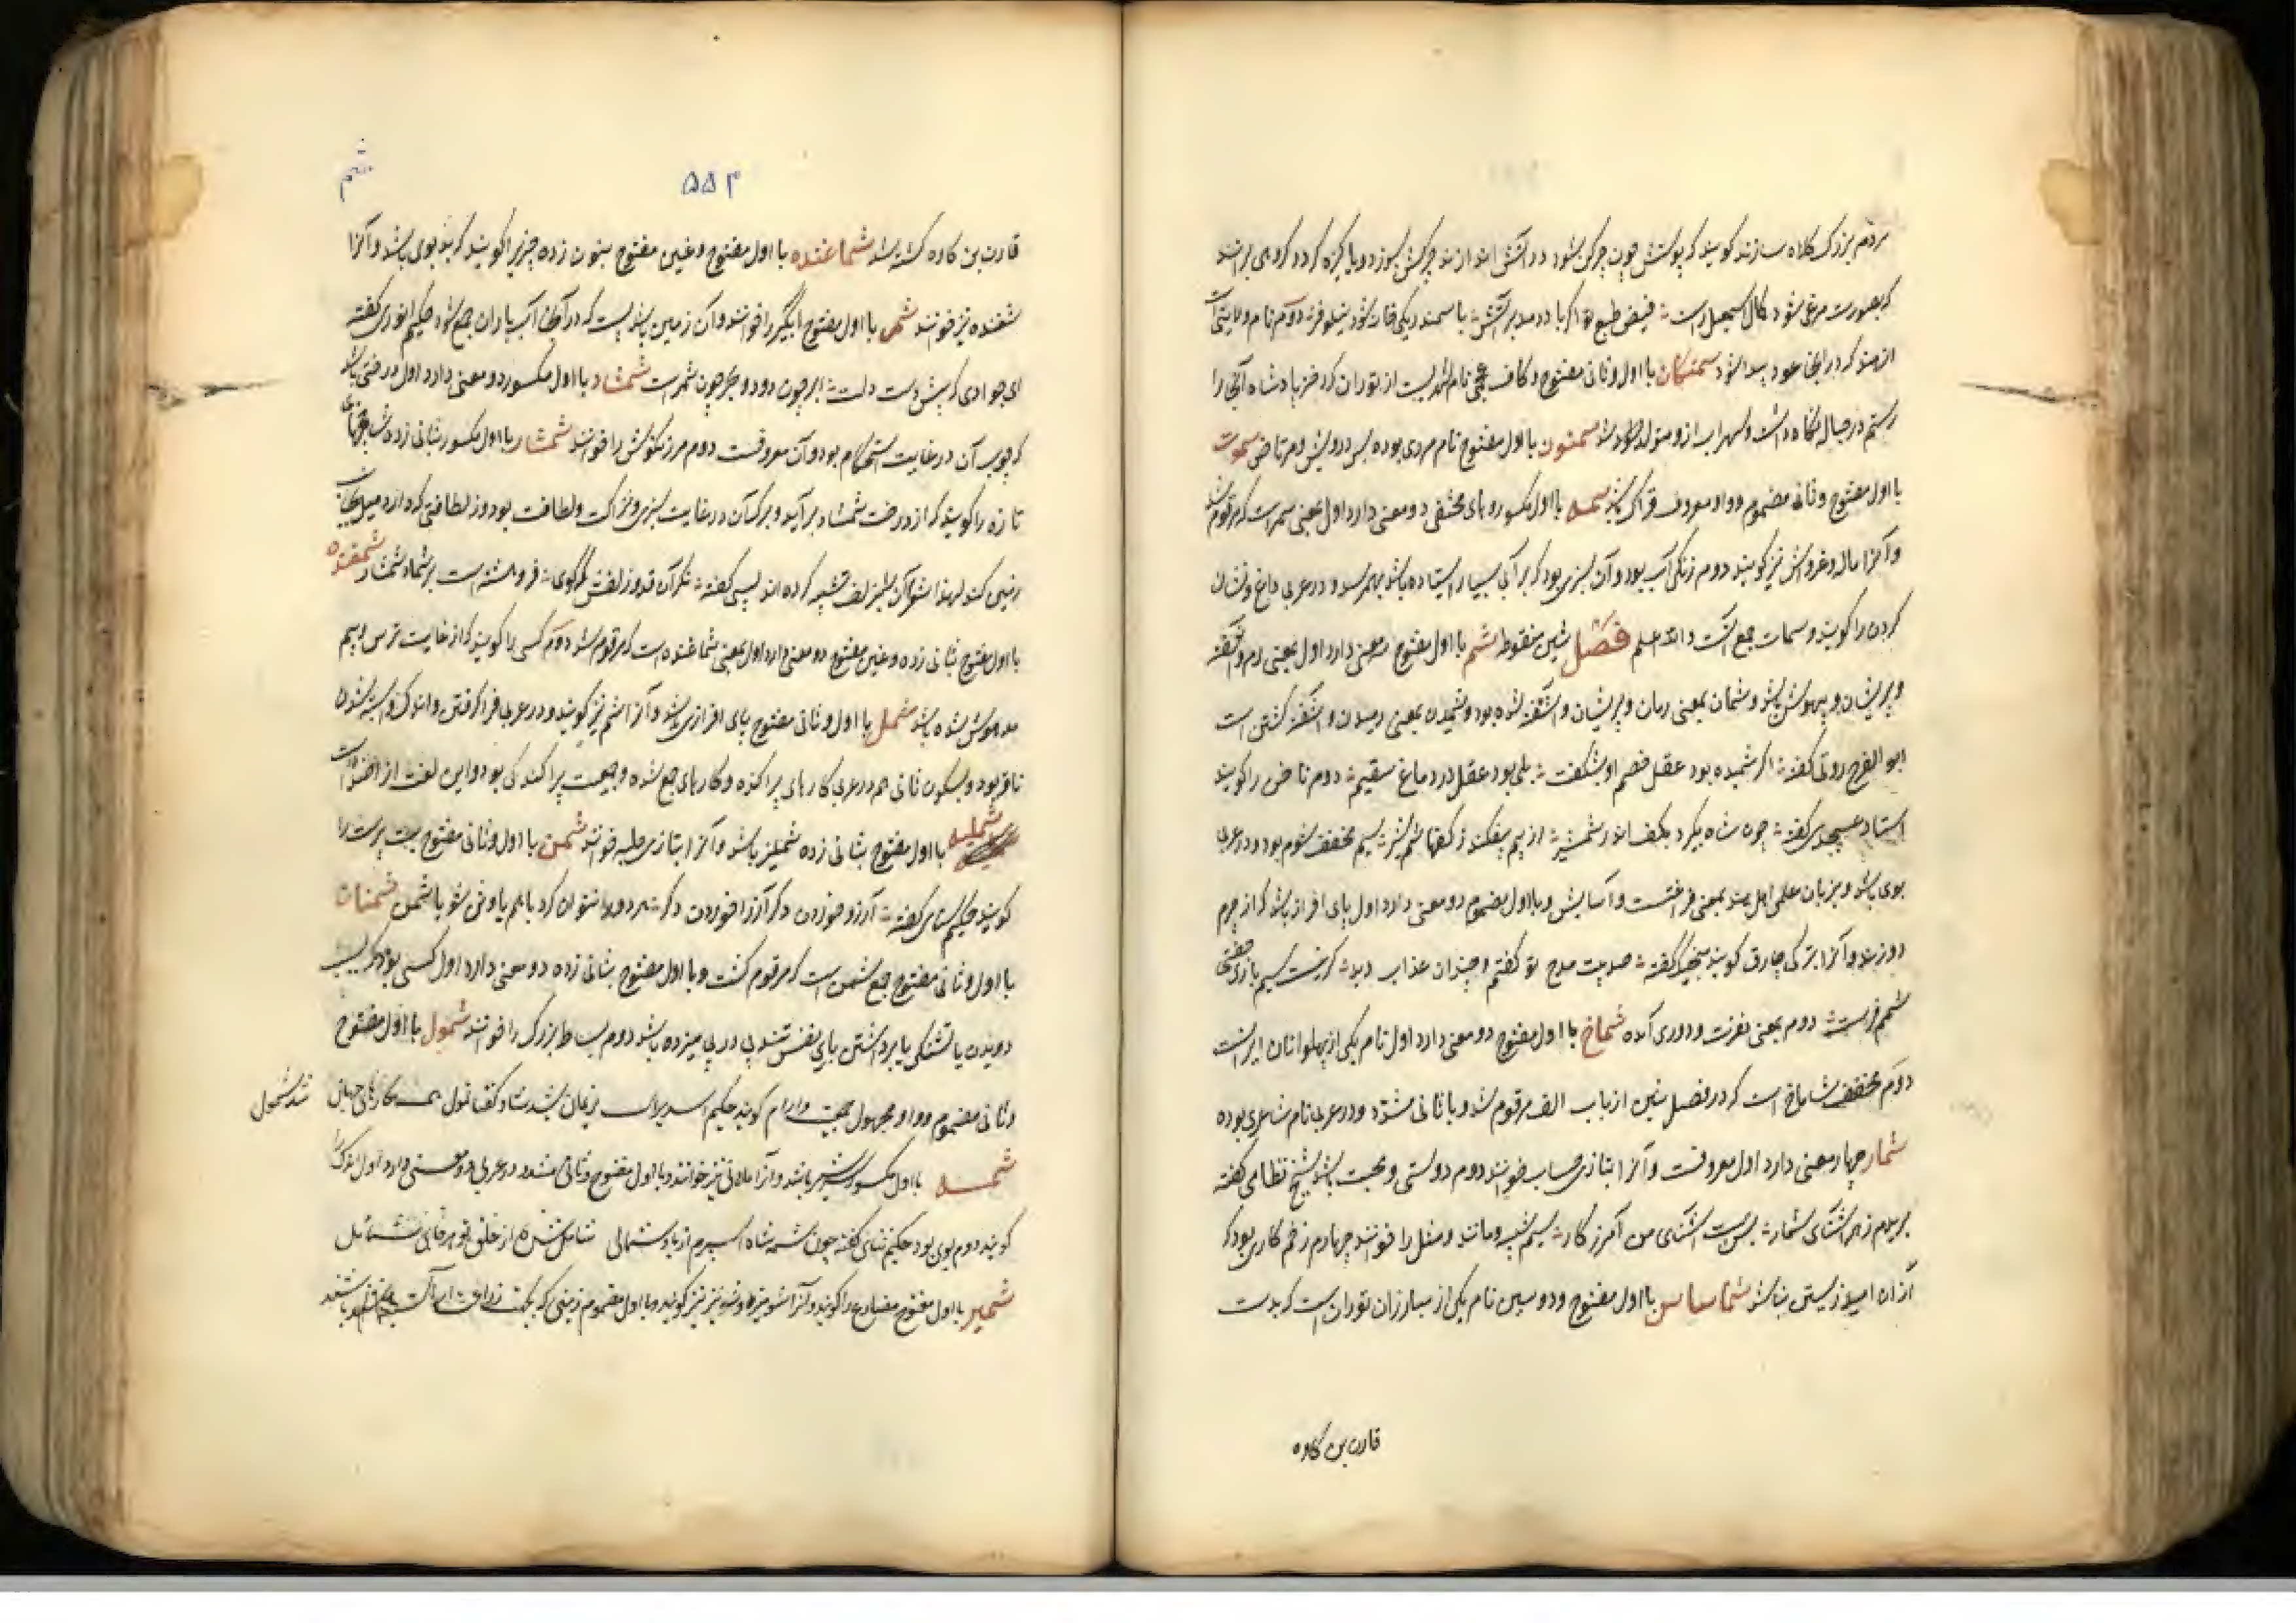 مردم بزرگ کلاه سازند گویند که پوستش چون چرکن شود در آتش اندازند چرکش بسوزد و پاکیزه گردد گروهی برانند
که بصورت مرغی شود کمال اسمعیل راست فیض طبع تو اگر باد دمد بر آتش با سمندر یکی فتات شود نیلوفر دوم نام ولایتی است
از هند که در آنجا عود پیدا شود سمنگان با اول و ثانی مفتوح و کاف عجمی نام شهریست از توران که دختر پادشاه آنجا را
رستم در حباله نگاه داشت و سهراب ازو متولد شد سمنون با اول مفتوح نام مردی بوده بس درویش و مرتاض سموت
با اول مفتوح و ثانی مضموم و واو معروف فتراک باشد سمه با اول مکسور و های مختفی دو معنی دارد اول بمعنی سمر است که مرقوم شد
و آنرا مال و غرواش نیز گویند دوم زنگی آب بود و آن سبزی بود که بر آبی بسیار ایستاده باشد بهم رسد و در عربی داغ و نشان
کردن را گویند و سمات جمع آنست والله اعلم فصل شین منقوطه شم با اول مفتوح معنی دارد اول بمعنی رم و آشفته
و پریشان و بیهوش باشد و شمان بمعنی رمان و پریشان و آشفته شده بود و شمیدن بمعنی رمیدن و آشفته گشتن است
ابو الفرج رونی گفته اگر شمیده بود عقل خصم او بشکفت بلی بود عقل در دماغ سقیم دوم ناخن را گویند
استاد عسجدی گفته چون شاه بگیرد بکف اندر شمشیر از بیم بیفکند ز کفها شم شیر سیم مخفف شوم بود و در عربی
بوی باشد و بزبان علمی اهل هند بمعنی فرغت و آسایش و با اول مضموم دو معنی دارد اول پای افراز باشد که از چرم
دوزند و آنرا بترکی چارق گویند گفته صد بیت مدح تو گفتم و چندان عذاب دید گرنیست سیم بازی
شمم فرست دوم بمعنی نفرت و دوری آمده شماخ با اول مفتوح دو معنی دارد اول نام یکی از پهلوانان ایرانست
دوم مخفف شاماخ است که در فصل شین از باب الف مرقوم شد و با ثانی مشدد در عربی نام شاعری بوده
شمار چهار معنی دارد اول معروفست و آنرا بتازی حساب خوانند دوم دوستی و محبت باشد شیخ نظامی گفته
بریدم ز هر آشنائی شمار بس است آشنای من آمرزگار سیم شبه و مانند و مثل را خوانند چهارم زخم کاری بود که
از آن امید زیستن نباشد شماساس با اول مفتوح و دو سین نام یکی از مبارزان توران است که بدست
قارن بن کاوه
شم
۵۵۴
قارن بن کاوه کشته شد شماغنده با اول مفتوح و غین مفتوح بنون زده چیزیرا گویند که بدبوی باشد و آنرا
شغنده نیز خوانند شمر با اول مفتوح آبگیر را خوانند و آن زمین پستیست که در آنجا آب باران جمع شود حکیم انوری گفته
ای جوادی که پیش دست دلت ابر چون دود و بحر چون شمر است شمشاد با اول مکسور دو معنی دارد اول درختی باشد
که چوب آن در غایت استحکام بود و آن معروفست دوم مرزنگوش را خوانند شمشار با اول مکسور بثانی زده شاخهای
تازه را گویند که از درخت شمشاد برآید و برگ آن در غایت سبزی و نزاکت و لطافت بود و ز لطافتی که دارد میل بجانب
زمین کند لهذا شعرا آن را بزلف تشبیه کرده اند لبیبی گفته نگر آن قد و زلفش که گوی فروهشته است بر شمشاد شمشار شمغنده
با اول مفتوح بثانی زده و غین مفتوح دو معنی دارد اول بمعنی شماغنده است که مرقوم شد دوم کسی را گویند که از غایت ترس و بیم
مدهوش شده باشد شمل با اول و ثانی مفتوح پای افرازی باشد و آنرا شم نیز گویند و در عربی فرا گرفتن و اندک و آبستن شدن
ناقه بود و بسکون ثانی هم در عربی کارهای پراکنده و کارهای جمع شده و جمعیت پراکندگی بود و این لغت از اضداد است
شملیه با اول مفتوح بثانی زده شملیز باشد و آنرا بتازی حلبه خوانند شمن با اول و ثانی مفتوح بت پرست را
گویند حکیم سنائی گفته آرزو خوردن دگر آرزا خوردن دگر هر دو را نتوان کرد با هم یا وثن شو یا شمن شمنان
با اول و ثانی مفتوح جمع شمن است که مرقوم گشت و با اول مفتوح بثانی زده دو معنی دارد اول کسی بود که بسبب
دویدن یا تشنگی یا برداشتن باری نفس تند پی در پی میزده باشد دوم بساط بزرگ را خوانند شمول با اول مفتوح
و ثانی مضموم و واو مجهول جمعیت و آرام گویند حکیم اسدی راست نریمان شد شاد و گفتا شمول همه کارهای جهان
شد شمول
شمه با اول مکسور سرشیر باشد و آنرا مادنی نیز خوانند و با اول مفتوح و ثانی مشدد در عربی دو معنی دارد اول اندک را
گویند دوم بوی بود حکیم سنائی گفته چون شمه شاه اسپرم از باد شمالی شامل شده از خلق تو هر جای شمائل
شمیر با اول مفتوح را گویند و آنرا شومیز و شومیز نیز گویند و با اول مضموم زمینی که بجهت زراعت آراسته باشند